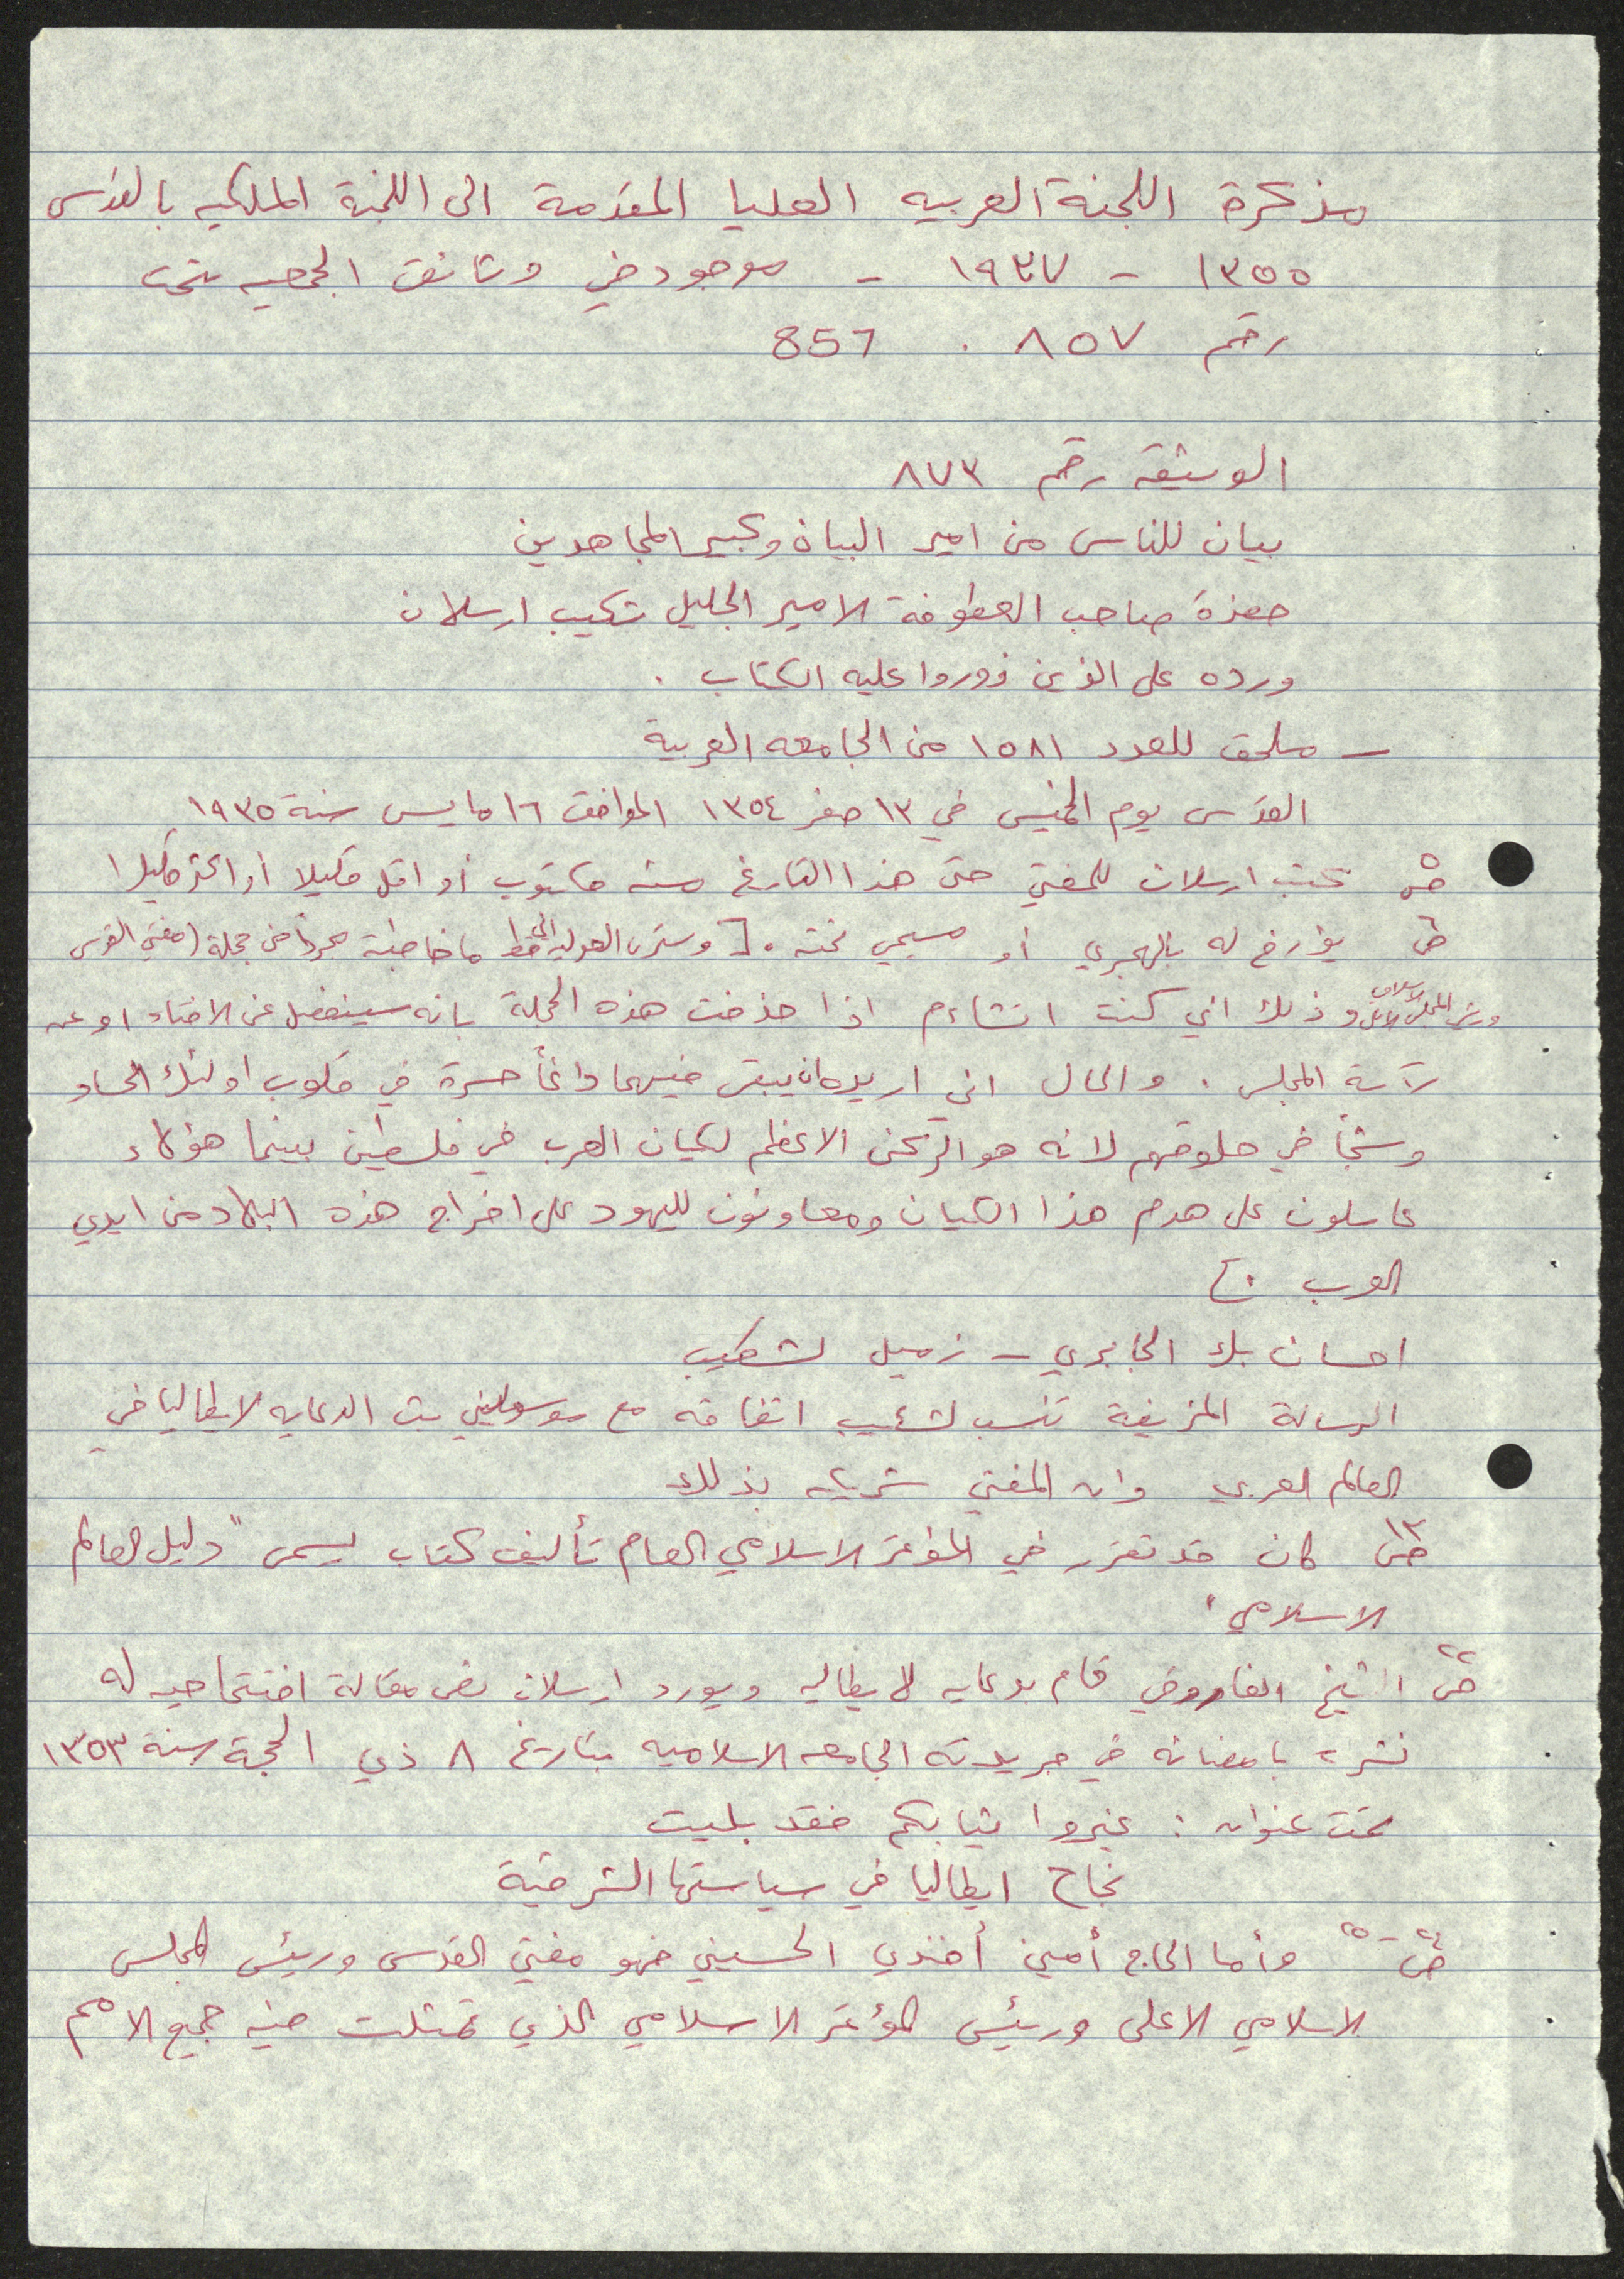 مذكرة اللجنة العربيه العليا المقدمة الى اللجنة الملكيه بالقدس
١٣٥٥ - ١٩٣٧ - موجود في وثائق الجمعيه تحت
رقم ٨٥٧ . 857
الوثيقه رقم ٨٧٣
بيان للناس من امير البيان وكبير المجاهدين
حضرة صاحب العطوفة الامير الجليل شكيب ارسلان
ورده على الذين زوروا عليه الكتاب .
- ملحق للعدد ١٥٨١ من الجامعه العربية
القدس يوم الخميس في ١٣ صفر ١٣٥٤ الموافق ١٦ مايس سنة ١٩٣٥
ص٥ كتب ارسلان للمفتي حتى هذا التاريخ مئه مكتوب أو اقل قليلا أو اكثر قليلا
ص٦ يؤرخ له بالهجري أو مسيحي تحته . [ وسترى العوليه الخط ما خاطبته مجرداً من جملة (مفتي القدس
ورئيس المجلس الاسلامي الاعلى) وذلك اني كنت اتشاءم اذا حذفت هذه الجملة بانه سينفصل عن الافتاء او عن
رآسة المجلس . والحال اني اريده ان يبقى فيهما دائماً حسرة في قلوب اولئك الحساد
وشجاً في حلوقهم لانه هو الركن الاعظم لكيان العرب في فلسطين بينما هؤلاء
عاملون على هدم هذا الكيان ومعاونون لليهود على اخراج هذه البلاد من ايدي
العرب . ]
احسان بك الجابري - زميل لشكيب
الرسالة المزيفة تنسب لشكيب اتفاقه مع موسوليني بث الدعايه لايطاليا في
العالم العربي وان المفتي شريكه بذلك
ص١٣ كان قد تقرر في المؤتمر الاسلامي العام تأليف كتاب يسمى "دليل العالم
الاسلامي"
ص٢٢ الشيخ الفاروقي قام بدعايه لايطاليه ويورد ارسلان نص مقالة افتتاحيه له
نشرت بامضائه في جريدته الجامعه الاسلاميه بتاريخ ٨ ذي الحجة سنة ١٣٥٣
تحت عنوان : غيروا ثيابكم فقد بليت
نجاح ايطاليا في سياستها الشرقية
ص٢٤-٢٥ وأما الحاج أمين أفندي الحسيني فهو مفتي القدس ورئيس المجلس
الاسلامي الاعلى ورئيس المؤتمر الاسلامي الذي تمثلت فيه جميع الامم